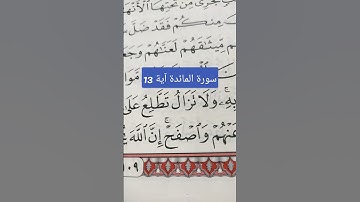 تَجْرِى مِن تَحْتِهَا ٱلْأَنْهَـ
مِنكُمْ فَقَدْ ضَلَّ سَـ
مِّيثَـٰقَهُمْ لَعَنَّـٰهُمْ وَجَـ
مَّوَا
سورة المائدة آية 13
بِهِۦ ۚ وَلَا تَزَالُ تَطَّلِعُ عَلَىٰ
عَنْهُمْ وَٱصْفَحْ ۚ إِنَّ ٱللَّهَ
١٠٩